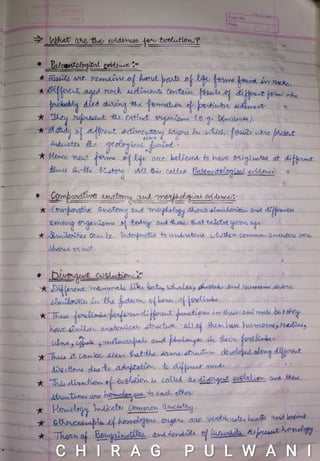 ⇒ What are the evidences for Evolution?
• Paleontological evidence :-
★ Fossils are remains of hard parts of life forms found in rocks.
★ Different aged rock sediments contain fossils of different life forms who
probably died during the formation of particular sediment
★ They represent the extinct organisms (e.g. Dinosaurs).
★ A study of different sedimentary layers in which fossils were present
indicates the geological period.
★ Hence new forms of life are believed to have originated at different
times in the history. All this called Paleontological evidence.
• Comparative anatomy and morphological evidence :-
★ Comparative anatomy and morphology shows similarities and differences
among organisms of today and those that existed years ago.
★ Similarities can be interpreted to understand, whether common ancestors were
shared or not.
• Divergent evolution :-
★ Different mammals like bats, whales, and humans share
similarities in the pattern of bones of forelimbs.
★ These forelimbs perform different functions in these animals but they
have similar anatomical structure. All of them have humerus, radius,
ulna, carpals, metacarpals and phalanges in their forelimbs.
★ Thus it can be seen that the same structure developed along different
directions due to adaptation to different needs.
★ This direction of evolution is called as divergent evolution and these
structures are homologous to each other
★ Homology indicate Common ancestry
★ Other examples of homologous organs are vertebrate hearts and brains
★ Thorn of Bougainvillea and tendrils of Cucurbita represent homology
CHIRAG PULWANI